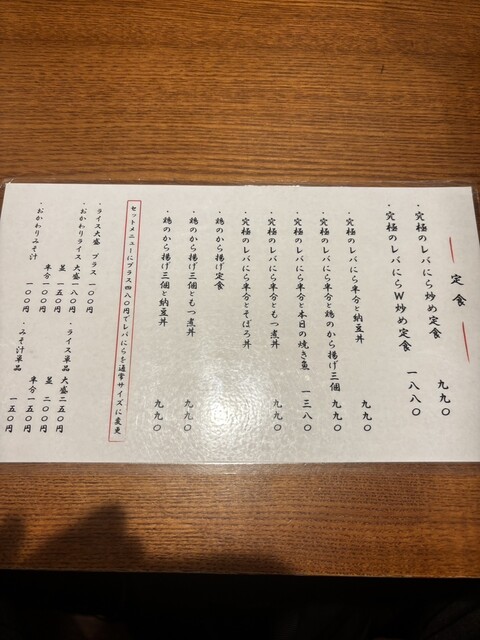 定食
・究極のレバにら炒め定食 九九〇
・究極のレバにらW炒め定食 一八八〇
・究極のレバにら半分と納豆丼 九九〇
・究極のレバにら半分と鶏のから揚げ三個 九九〇
・究極のレバにら半分と本日の焼き魚 一三八〇
・究極のレバにら半分ともつ煮丼 九九〇
・究極のレバにら半分とそぼろ丼
・鶏のから揚げ定食
・鶏のから揚げ三個ともつ煮丼 九九〇
・鶏のから揚げ三個と納豆丼 九九〇
セットメニューにプラス四八〇円でレバにらを通常サイズに変更
・ライス大盛 プラス 一〇〇円
・おかわりライス 大盛一八〇円
並 一五〇円
半分 一〇〇円
・おかわりみそ汁 一〇〇円
・ライス単品 大盛二五〇円
並 二〇〇円
半分 一五〇円
・みそ汁単品 一五〇円